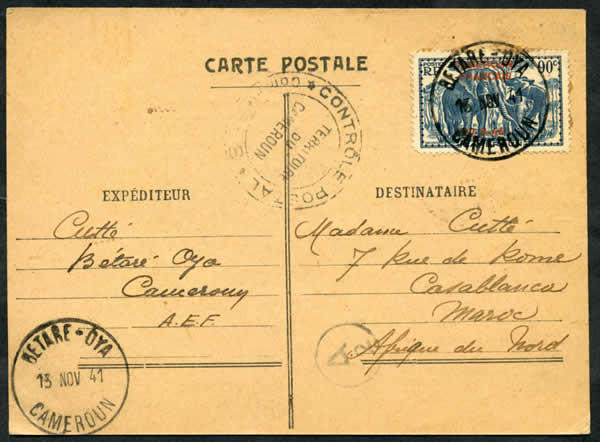 CARTE POSTALE
RF
90c
CAMEROUN
FRANÇAIS
BETARE-OYA
13 NOV 41
CAMEROUN
CONTRÔLE POSTAL
TERRITOIRE
DU
CAMEROUN
EXPÉDITEUR
Cutté
Bétaré Oya
Cameroun
A.E.F.
DESTINATAIRE
Madame Cutté
7 Rue de Rome
Casablanca
Maroc
Afrique du Nord
A
BETARE-OYA
13 NOV 41
CAMEROUN